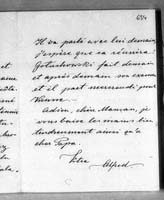 Il va partir avec lui demain
J'espère que ça réussira
Goluchowski fait demain
et après demain sa
et il part mercredi pour
Vienne.
Adieu, chère Maman, je
vous baise les mains bien
tendrement ainsi qu'à
cher Papa.
Alfred